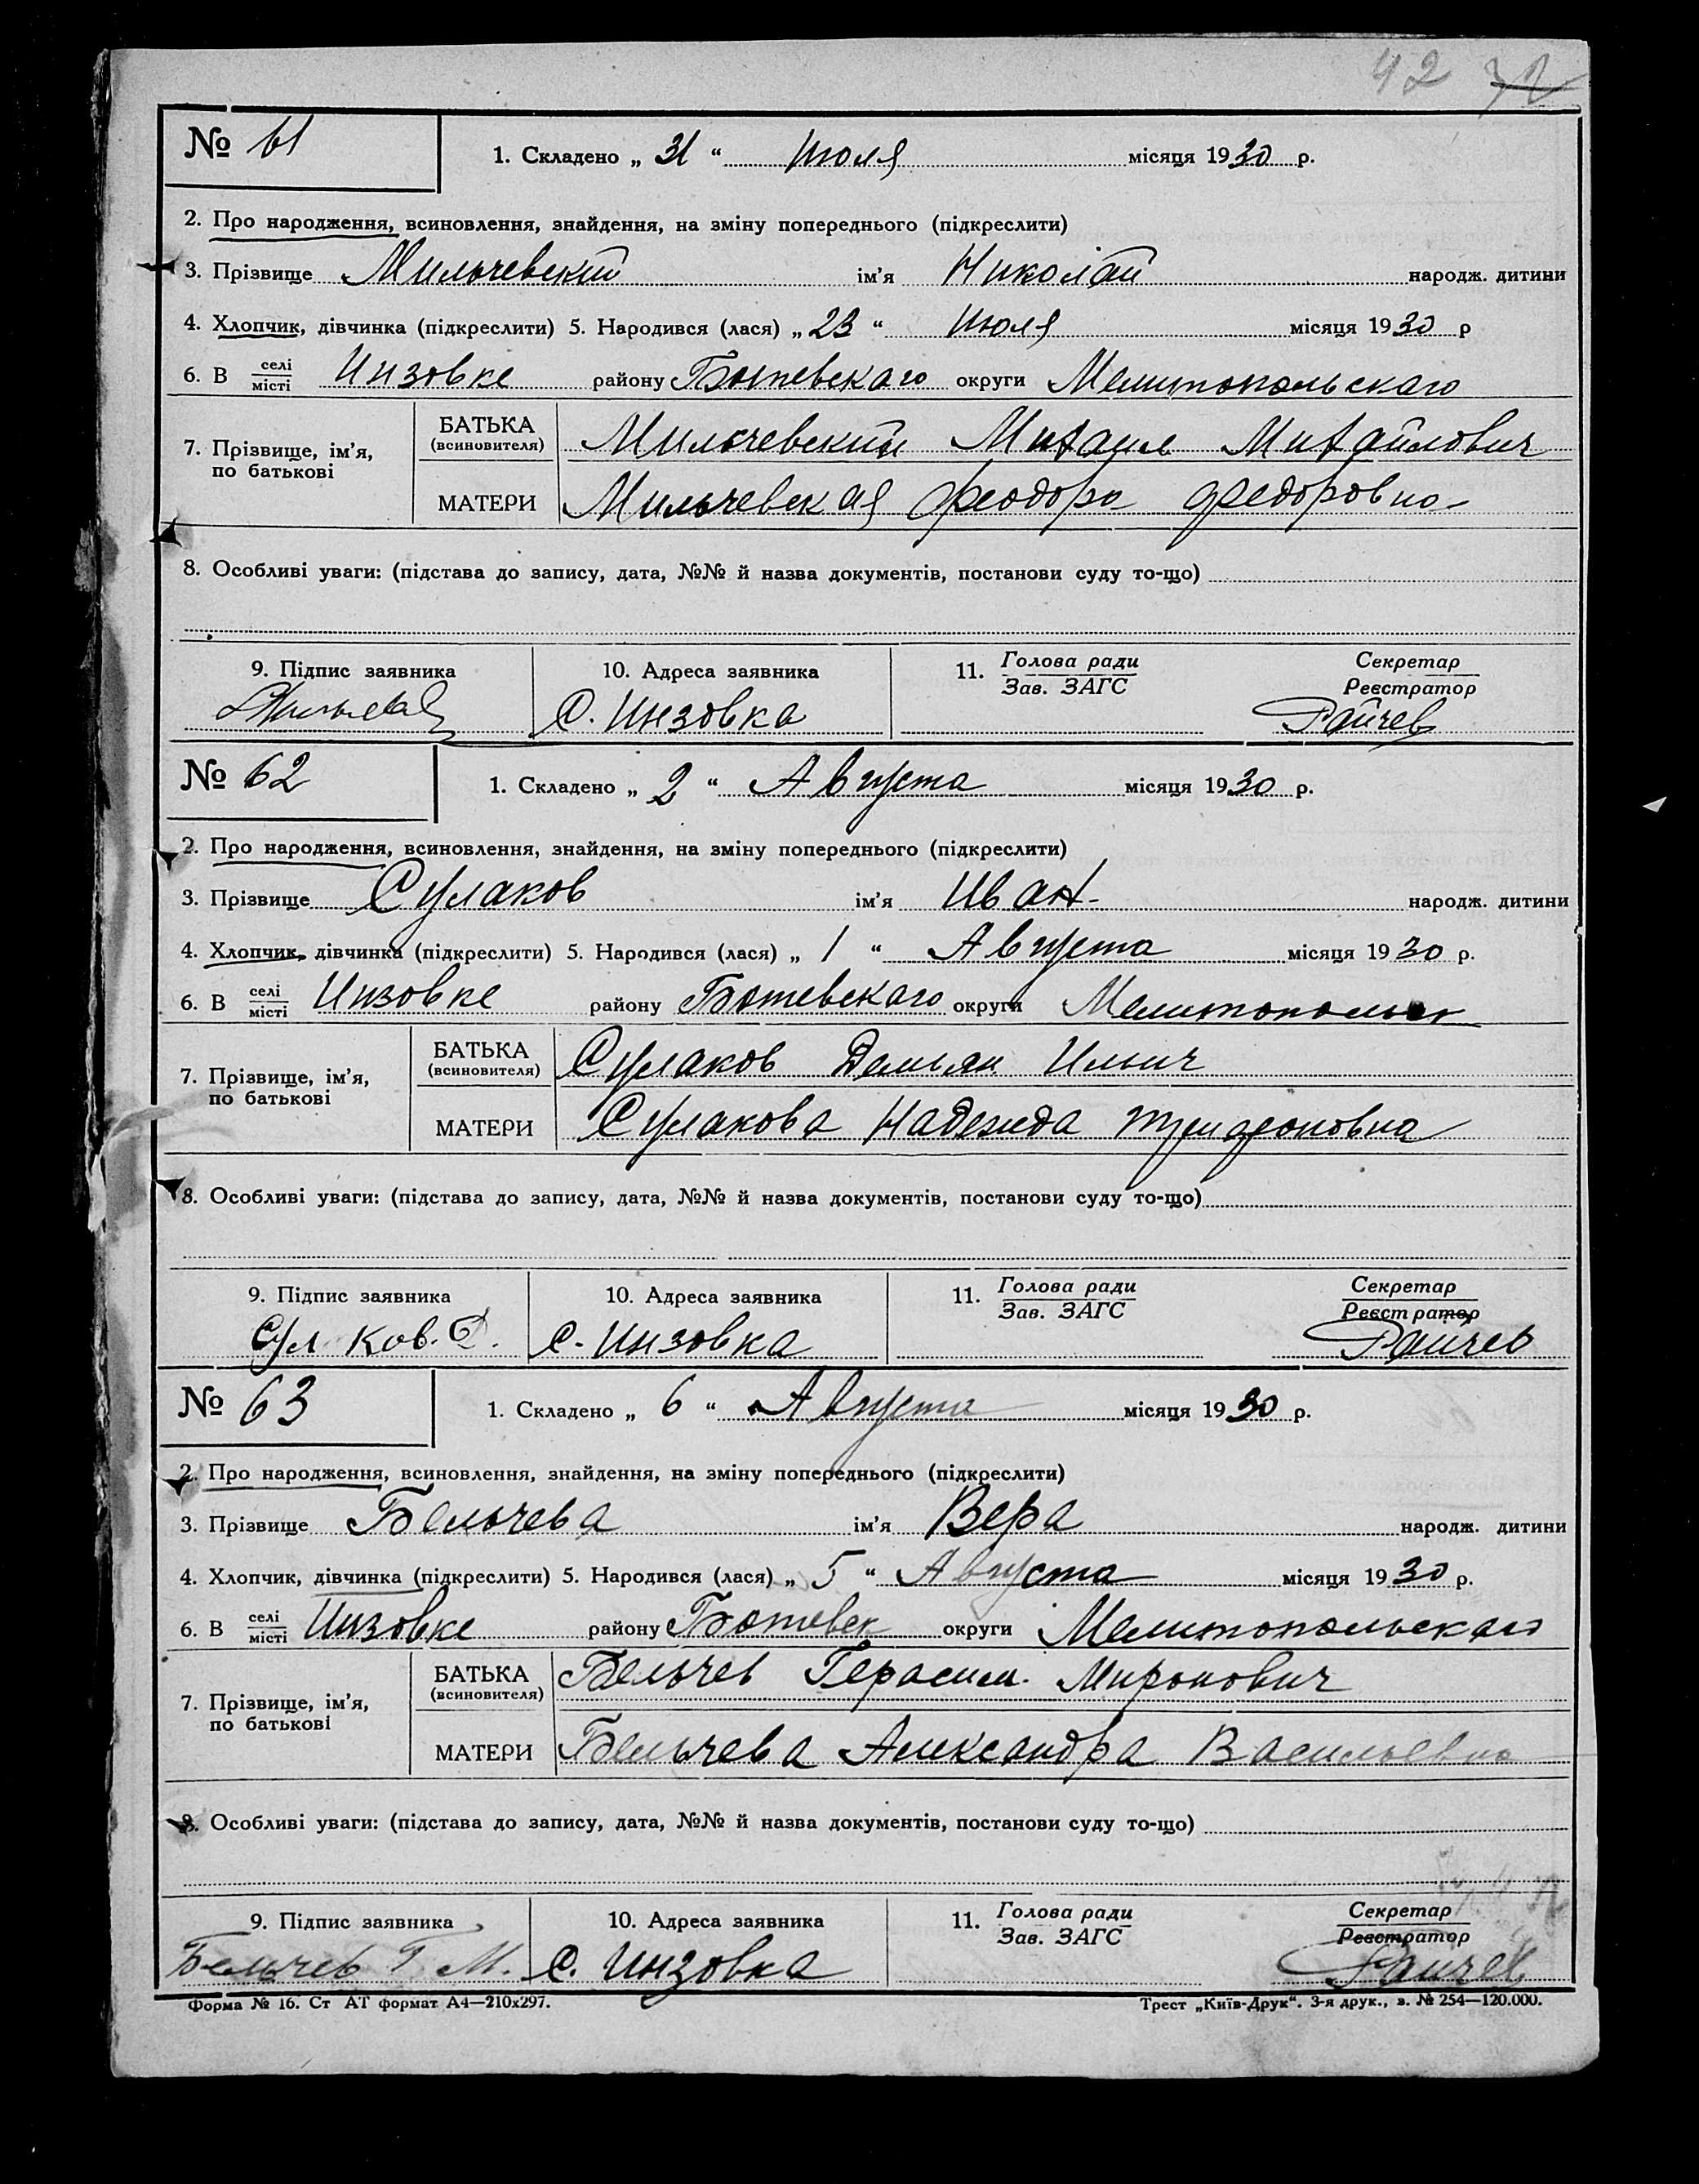 42 72
№ 61 1. Складено „ 31 “ Июля місяця 1930 р.
2. Про народження, всиновлення, знайдення, на зміну попереднього (підкреслити)
3. Прізвище Мильчевский ім’я Николай народж. дитини
4. Хлопчик, дівчинка (підкреслити) 5. Народився (лася) „ 23 “ Июля місяця 1930 р
6. В селі місті Инзовке району Ботевскаго округи Мелитопольскаго
БАТЬКА
(всиновителя) Мильчевский Михаил Михайлович
7. Прізвище, ім’я,
по батькові
МАТЕРИ Мильчевская Феодора Федоровна
8. Особливі уваги: (підстава до запису, дата, №№ й назва документів, постанови суду то-що)
9. Підпис заявника 10. Адреса заявника 11. Голова ради Зав. ЗАГС Секретар Реєстратор
С. Инзовка Райчев
№ 62 1. Складено „ 2 “ Августа місяця 1930 р.
2. Про народження, всиновлення, знайдення, на зміну попереднього (підкреслити)
3. Прізвище Сулаков ім’я Иван народж. дитини
4. Хлопчик, дівчинка (підкреслити) 5. Народився (лася) „ 1 “ Августа місяця 1930 р.
6. В селі місті Инзовке району Ботевскаго округи Мелитопольск
БАТЬКА
(всиновителя) Сулаков Демьян Ильич
7. Прізвище, ім’я,
по батькові
МАТЕРИ Сулакова Надежда Трифоновна
8. Особливі уваги: (підстава до запису, дата, №№ й назва документів, постанови суду то-що)
9. Підпис заявника 10. Адреса заявника 11. Голова ради Зав. ЗАГС Секретар Реєстратор
Сул ков. Д. С. Инзовка Райчев
№ 63 1. Складено „ 6 “ Августа місяця 1930 р.
2. Про народження, всиновлення, знайдення, на зміну попереднього (підкреслити)
3. Прізвище Бельчева ім’я Вера народж. дитини
4. Хлопчик, дівчинка (підкреслити) 5. Народився (лася) „ 5 “ Августа місяця 1930 р.
6. В селі місті Инзовке району Ботевск округи Мелитопольскаго
БАТЬКА
(всиновителя) Бельчев Герасим Миронович
7. Прізвище, ім’я,
по батькові
МАТЕРИ Бельчева Александра Васильевна
8. Особливі уваги: (підстава до запису, дата, №№ й назва документів, постанови суду то-що)
9. Підпис заявника 10. Адреса заявника 11. Голова ради Зав. ЗАГС Секретар Реєстратор
Бельчев Г М. С. Инзовка Райчев
Форма № 16. Ст АТ формат А4—210х297. Трест „Київ-Друк“. 3-я друк., з. № 254—120.000.